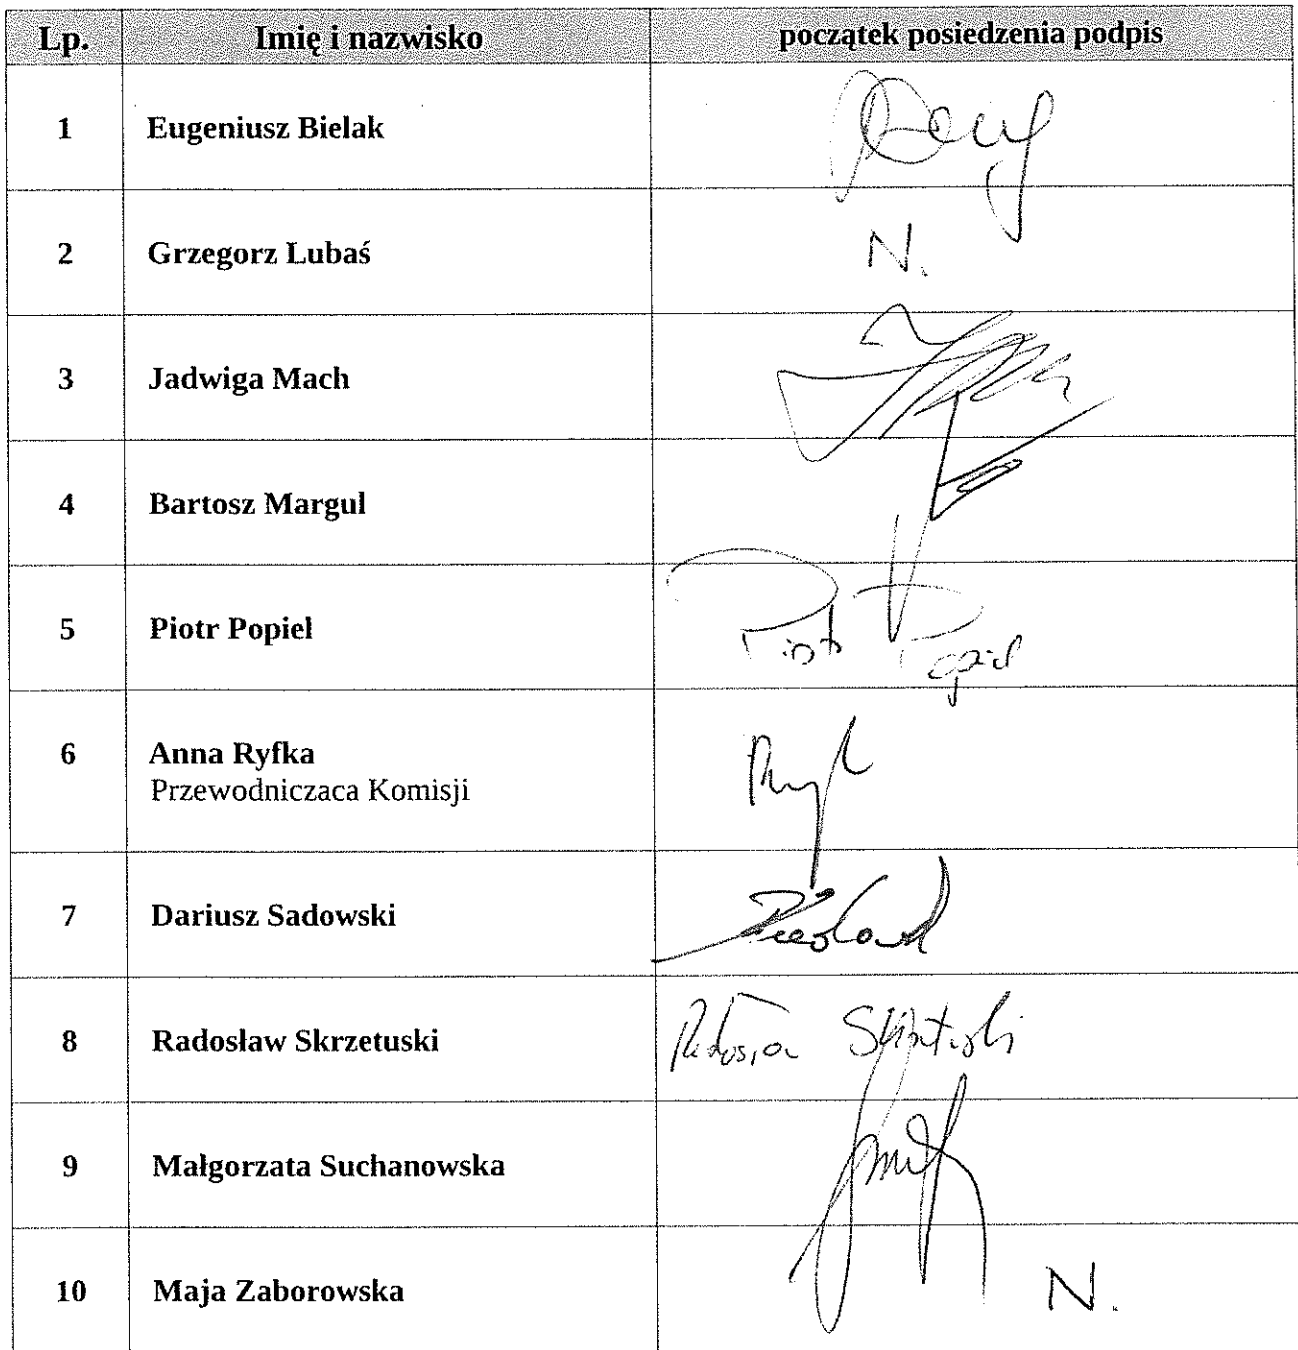 Lp. Imię i nazwisko początek posiedzenia podpis
1 Eugeniusz Bielak
2 Grzegorz Lubaś N.
3 Jadwiga Mach
4 Bartosz Margul
5 Piotr Popiel Piotr Popiel
6 Anna Ryfka
Przewodniczaca Komisji
7 Dariusz Sadowski
8 Radosław Skrzetuski
9 Małgorzata Suchanowska
10 Maja Zaborowska N.